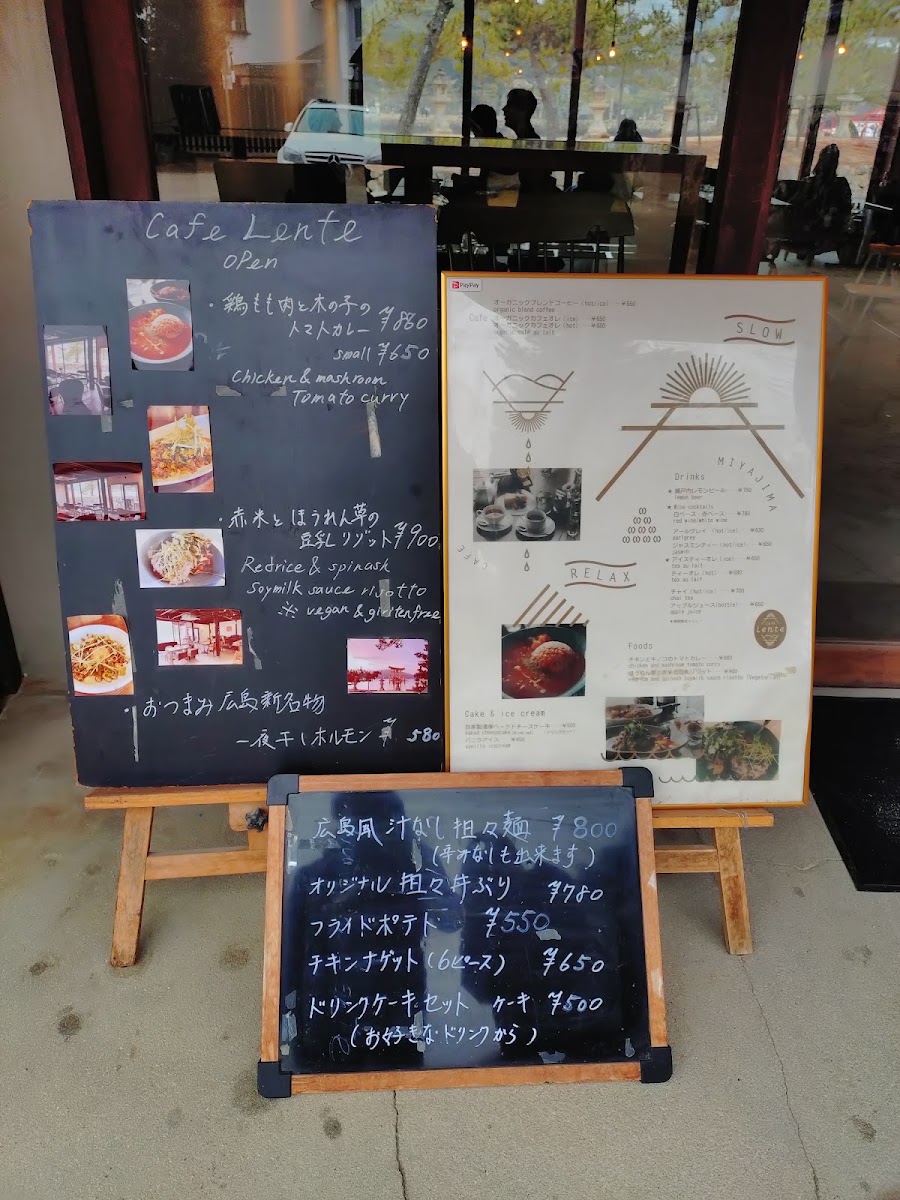 Cafe Lente
OPen
・鶏もも肉と木の子の
トマトカレー ¥880
small ¥650
Chicken & mashroom
Tomato curry
・赤米とほうれん草の
豆乳リゾット ¥900
Redrice & spinash
Soymilk sauce risotto
※ vegan & glutenfree
・おつまみ広島新名物
一夜干しホルモン ¥580
PayPay
オーガニックブレンドコーヒー (hot/ice)
organic blend coffee
Cafe
オーガニックカフェオレ (ice)
オーガニックカフェオレ (hot)
SLOW
MIYAJIMA
CAFE
RELAX
Drinks
★ 瀬戸内レモンビール
lemon beer
★ Wine cocktails
白ベース・赤ベース
red wine/white wine
アールグレイ (hot/ice)
earlgrey
ジャスミンティー (hot/ice)
jasmin
★ アイスティーオレ (ice)
tea au lait
ティーオレ (hot)
tea au lait
チャイ (hot/ice)
chai tea
アップルジュース(bottle)
apple juice
Lente
Foods
チキンとキノコのトマトカレー
chicken and mushroom tomato curry
Cake & ice cream
自家製濃厚ベークドチーズケーキ
バニラアイス
vanilla icecream
広島風 汁なし担々麺 ¥800
(辛みなしも出来ます)
オリジナル 担々丼ぶり ¥780
フライドポテト ¥550
チキンナゲット (6ピース) ¥650
ドリンクケーキセット ケーキ ¥500
(お好きなドリンクから)